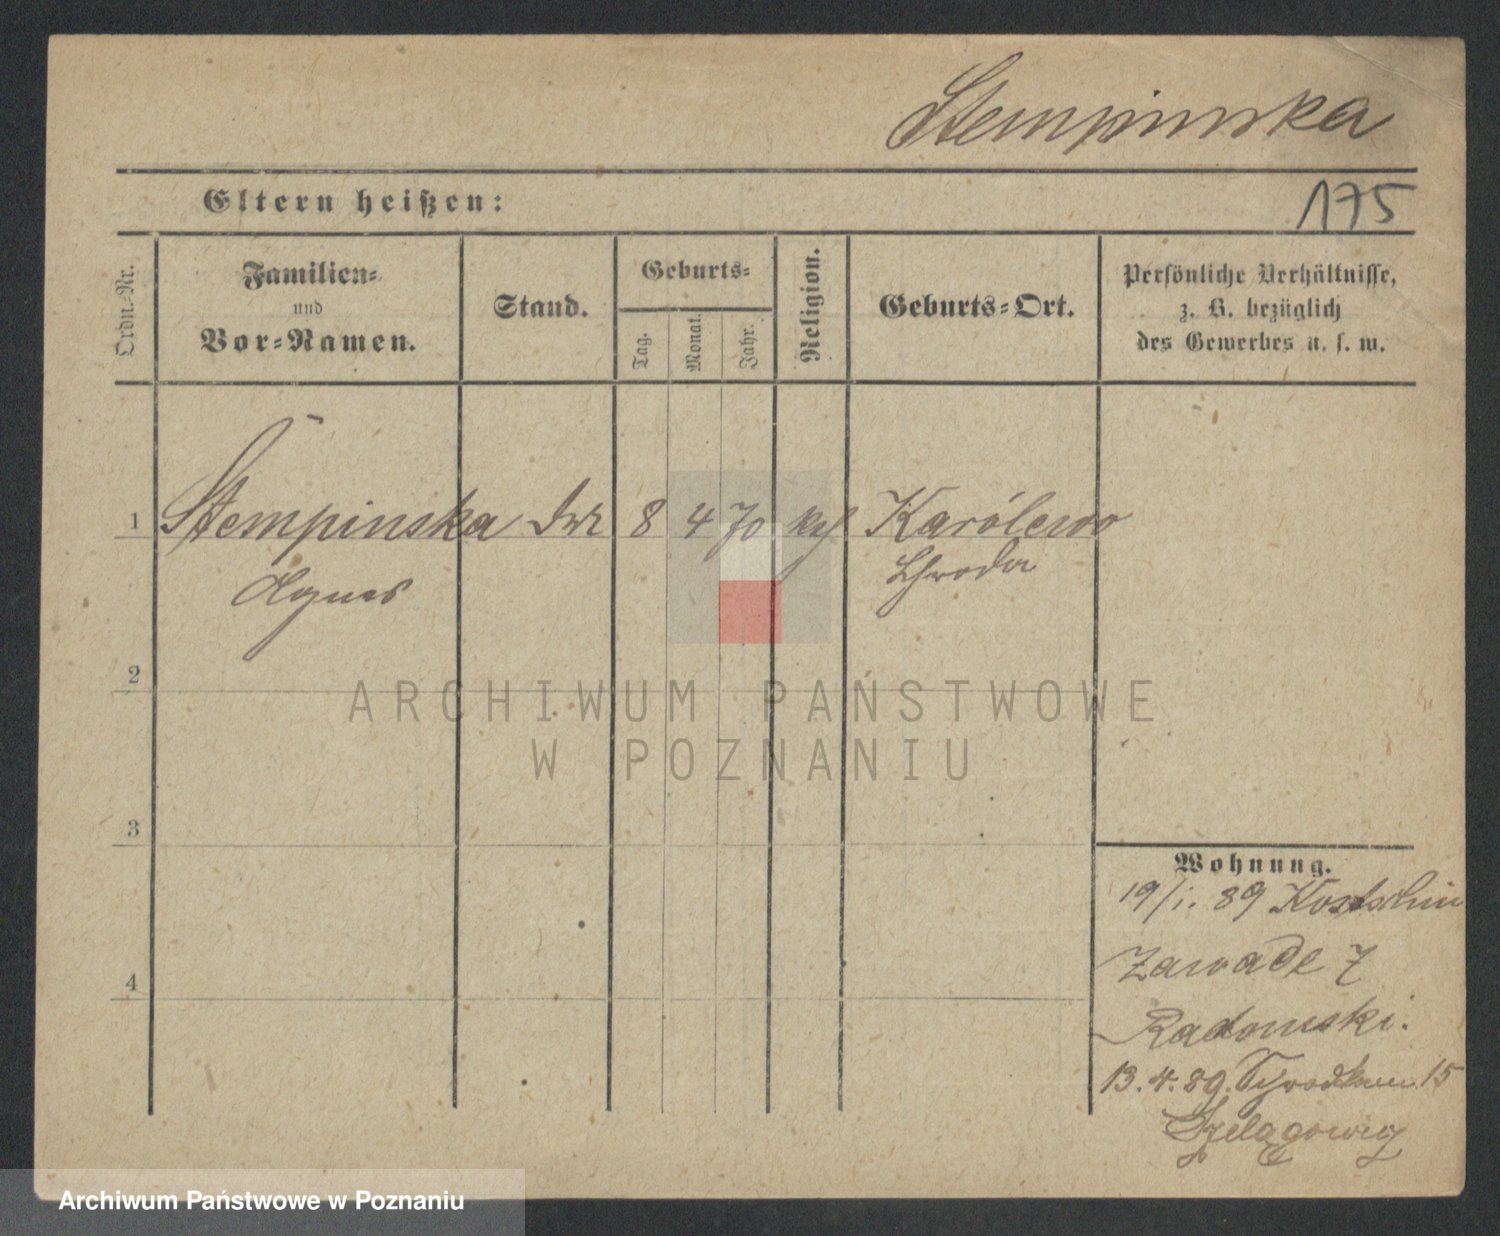 Stempinska
175
Eltern heißen:
Ordn.-Nr.
Familien-
und
Vor-Namen.
Stand.
Geburts-
Tag.
Monat.
Jahr.
Religion.
Geburts-Ort.
Persönliche Verhältnisse,
z. B. bezüglich
des Gewerbes u. s. w.
1 Stempinska 8 4 70 Karólewo
Agnes Schroda
2
ARCHIWUM PAŃSTWOWE
W POZNANIU
3
Wohnung.
19/1. 89 Kostschin
4
Zawade 7
Radomski.
13. 4. 89. 15
Archiwum Państwowe w Poznaniu